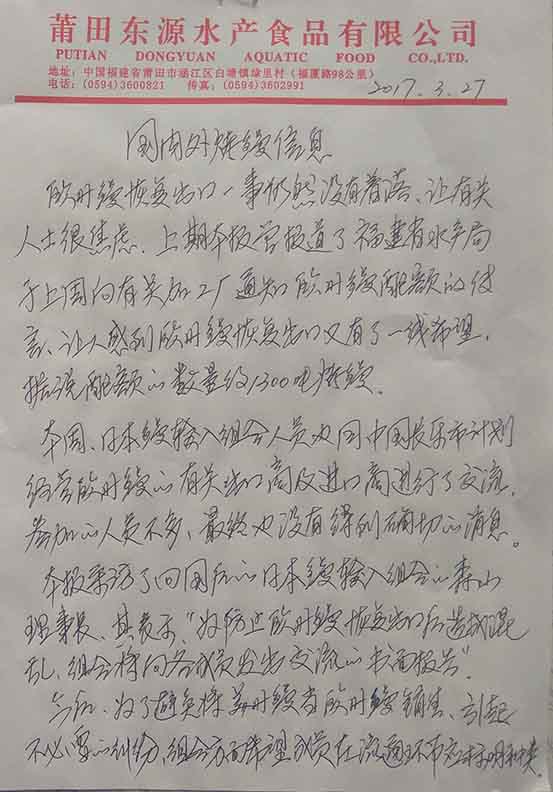 莆田东源水产食品有限公司
PUTIAN DONGYUAN AQUATIC FOOD CO.,LTD.
地址：中国福建省莆田市涵江区白塘镇埭里村（福厦路98公里）
电话：(0594)3600821 传真：(0594)3602991
2017.3.27
国内外烤鳗信息
欧洲鳗恢复出口一事仍然没有着落、让有关
人士很焦虑．上期本报曾报道了福建省水产局
于上周向有关加工厂通知欧洲鳗配额的传
言、让人感到欧洲鳗恢复出口又有了一线希望．
据说配额的数量约1300吨烤鳗．
本周、日本鳗输入组合人员也同中国及乐市计划
经营欧洲鳗的有关出口商及进口商进行了交流．
参加的人员不多、最终也没有得到确切的消息。
本报采访了回国后的日本鳗输入组合的森山
理事长、其表示、"为防止欧洲鳗恢复出口后造成混
乱，组合将向各成员发出交流的书面报告"．
今后．为了避免将美洲鳗当欧洲鳗销售、引起
不必要的纠纷，组合方面希望成员在流通环节应标明种类